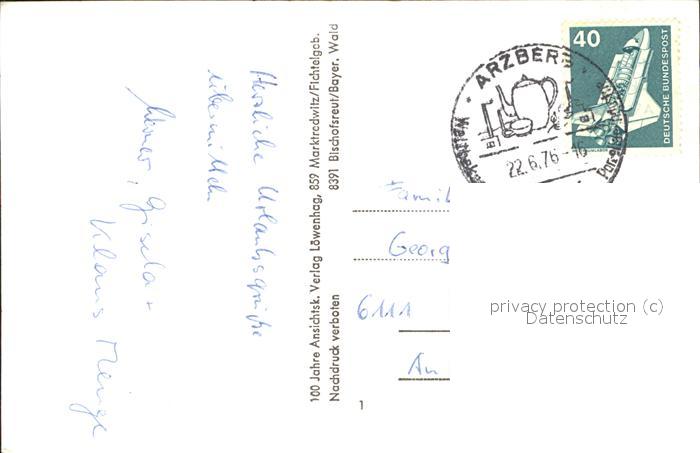 Herzliche Urlaubsgrüße
übermitteln
Werner, Gisela +
Klaus
100 Jahre Ansichtsk. Verlag Löwenhag, 859 Marktredwitz/Fichtelgeb.
8391 Bischofsreut/Bayer. Wald
Nachdruck verboten
1
ARZBERG
22.6.76-16
40
DEUTSCHE BUNDESPOST
Famil
Georg
6111
An
privacy protection (c)
Datenschutz